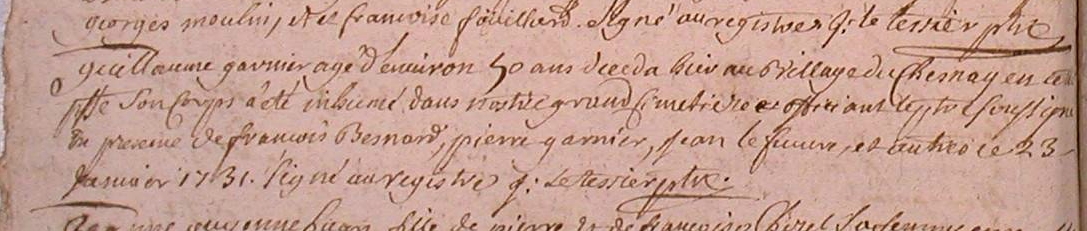 georges moulin, et de francoise fouilhard. signé au registre J: le tessier ptre
guillaume garnier agé d'environ 50 ans deceda hier au village du Chesnay en cette
psse son corps a été inhumé dans nostre grand Cimetiere officiant le ptre soussigné
En presence de francois Besnard, pierre garnier, jean le feuvre, et autres ce 23
Janvier 1731. signé au registre J: Letessier ptre.
fille de pierre et de francoise